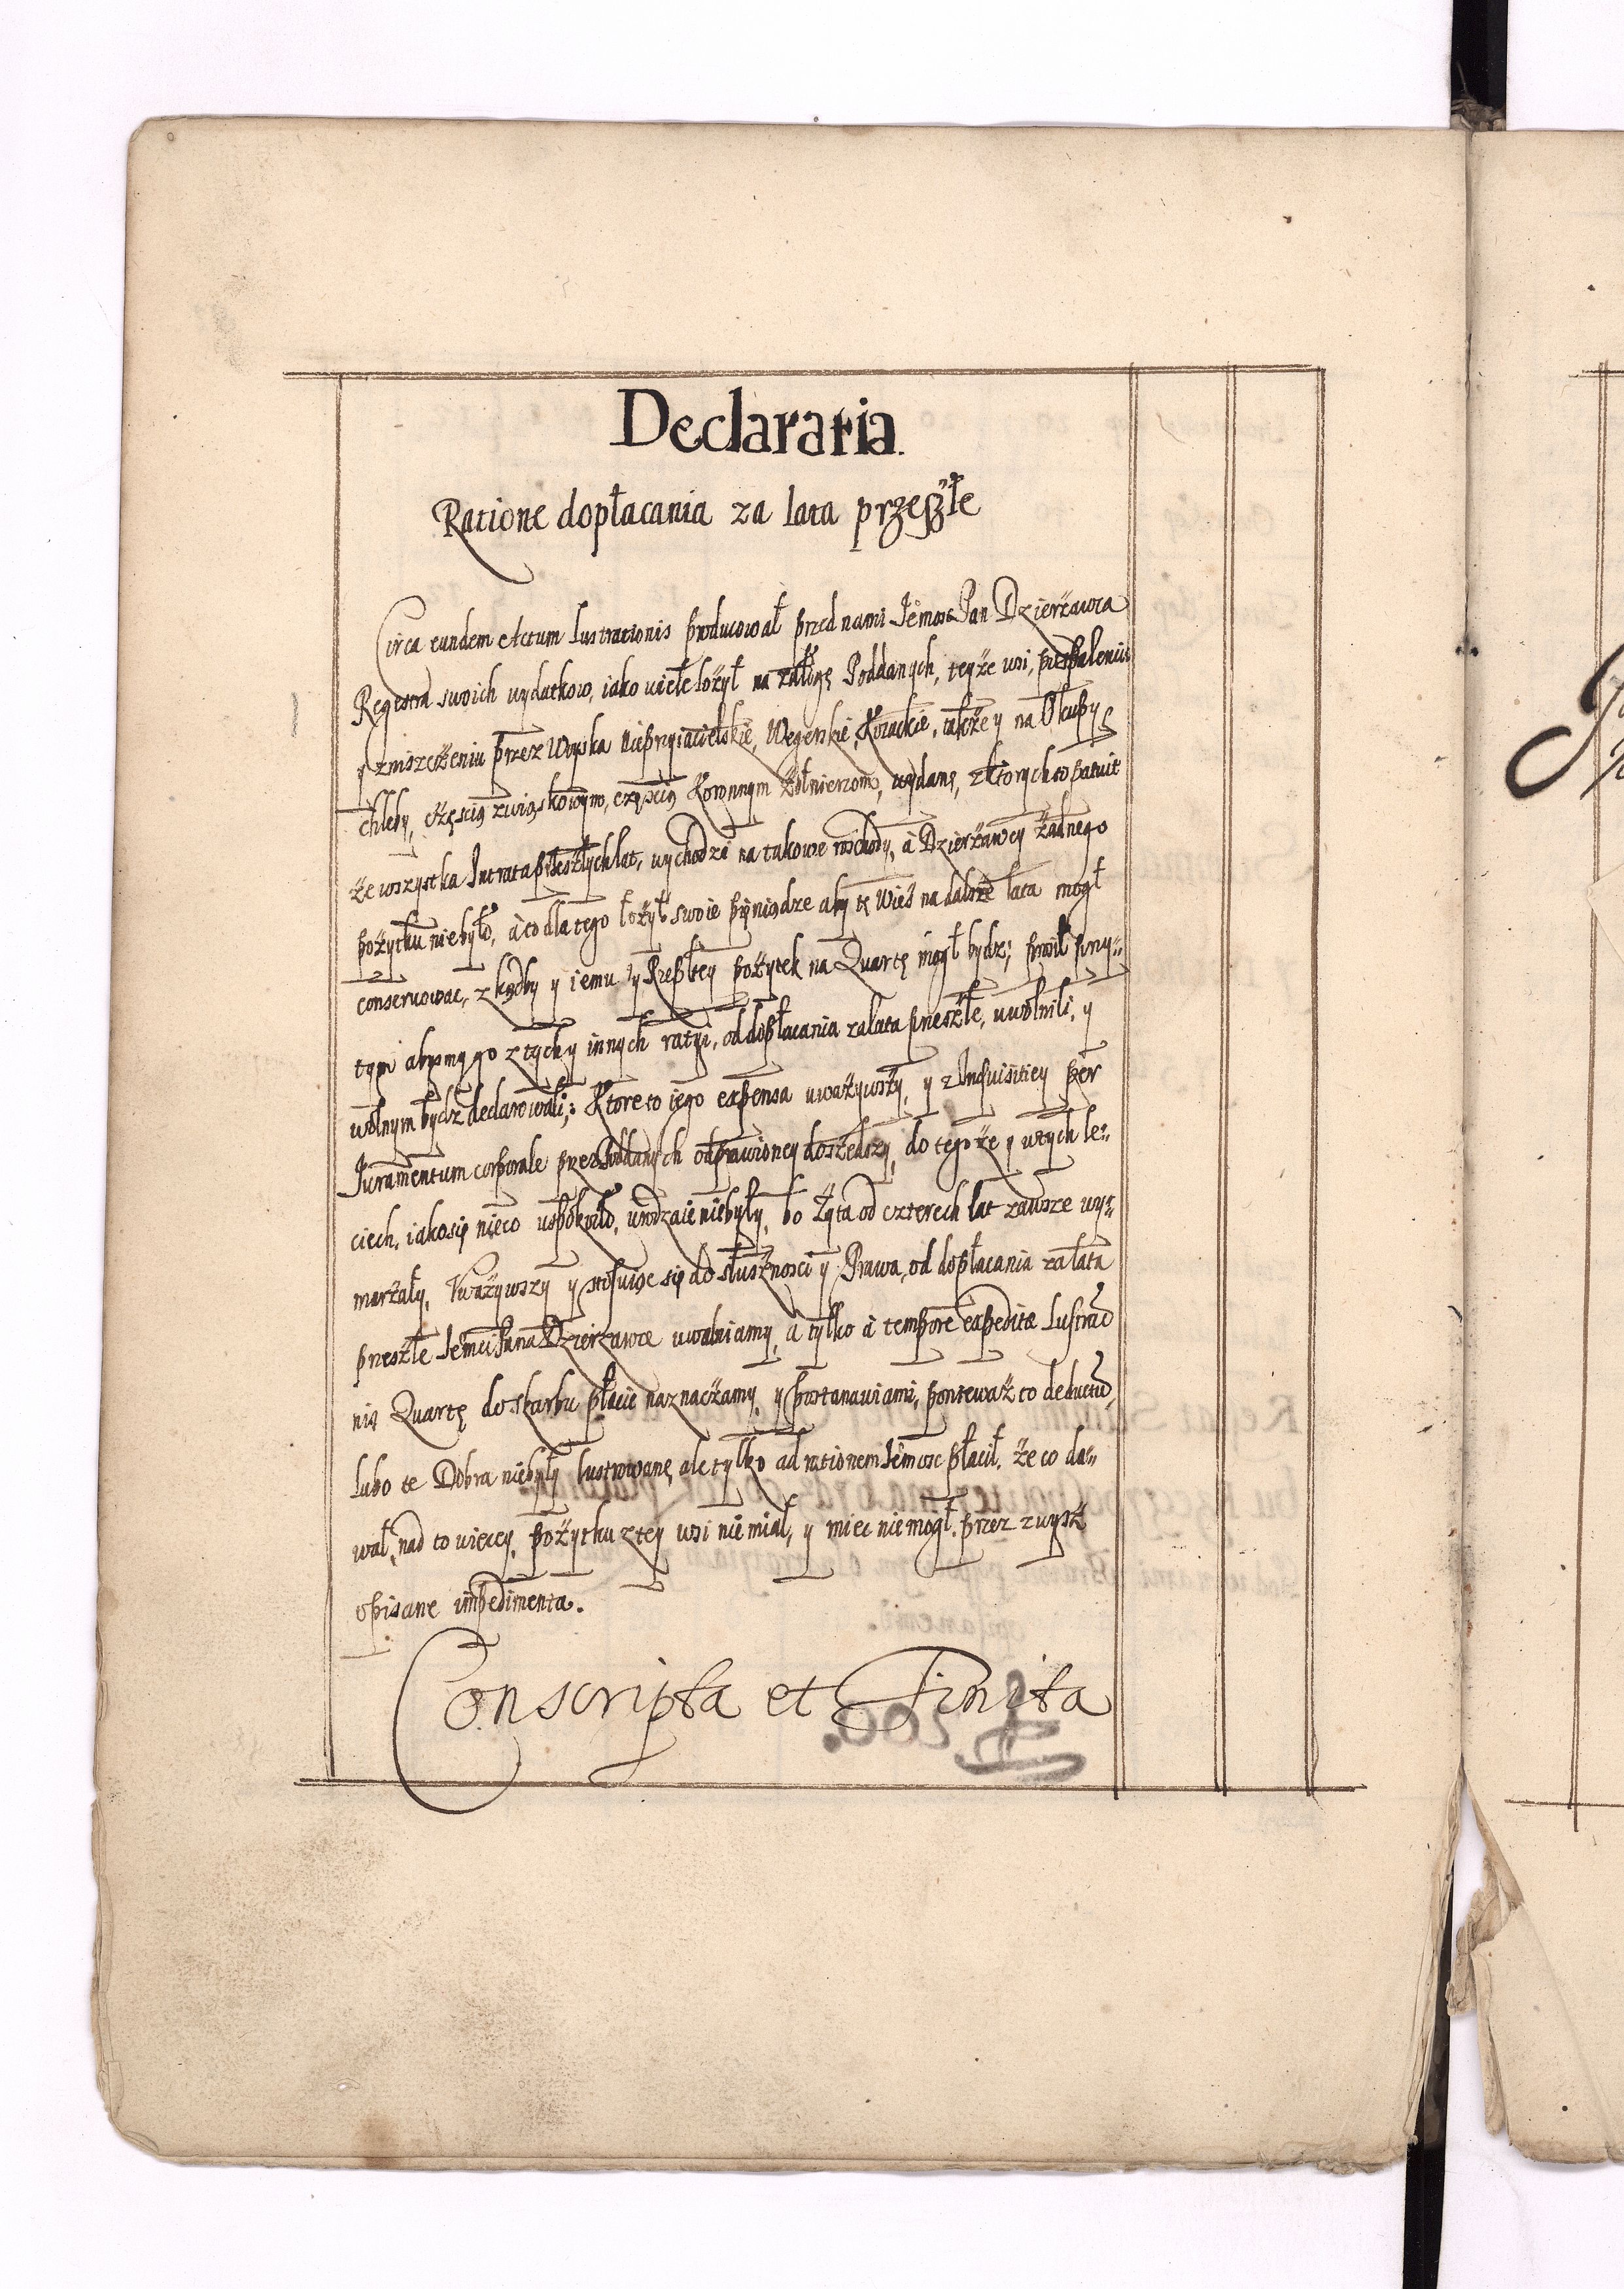 Declaratia.
Ratione dopłacania za lata przeszłe
Circa eundem Actum Lustrationis producował przed nami Jemość Pan Dzierżawca
Regestra swoich wydatkow, iako wiele łożył na załogę Poddanych, teyże wsi, po spaleniu
y zniszczeniu przez Woyska Nieprzyiacielskie, Węgerskie, Kozackie, także y na Okupy
chleby, częscią związkowym, częscią Koronnym Żołnierzom, wydane, z ktorych to patuit
że wszystka Intrata przeszłych lat, wychodzi na takowe roschody, à Dzierżawcy żadnego
pożytku nie było, à to dla tego łożył swoie pieniądze aby tę Wieś na dalsze lata mogł
conservować, z kądby y iemu y Rzeptey pożytek na Quartę mogł bydz; prosił przy=
tym abysmy go z tych y innych ratyi, od dopłacania za lata przeszłe, uwolnili, y
wolnym bydź declarowali; Ktore to iego expensa uważywszy, y z Inquisitiey per
Juramentum corporale przez Poddanych odprawioney doszedszy, do tego że y w tych le=
ciech, iako się nieco uspokoiło, urodzaie nie były, bo Żyta od czterech lat zawsze wy=
marzały, Uważywszy y stosuiąc się do słusznosci y Prawa, od dopłacania za lata
przeszłe Jemci Pana Dzierzawce uwalniamy, a tylko à tempore expeditæ Lustrao
nis Quartę do skarbu płacić naznaczamy, y postanawiami, ponieważ to deductu,
lubo te Dobra nie były lustrowane, ale tylko ad rationem Jemośc płacił. że co da=
wał, nad to więcey, pożytku z tey wsi nie miał, y miec nie mogł. przez zwysz
opisane impedimenta.
Conscripta et Finita